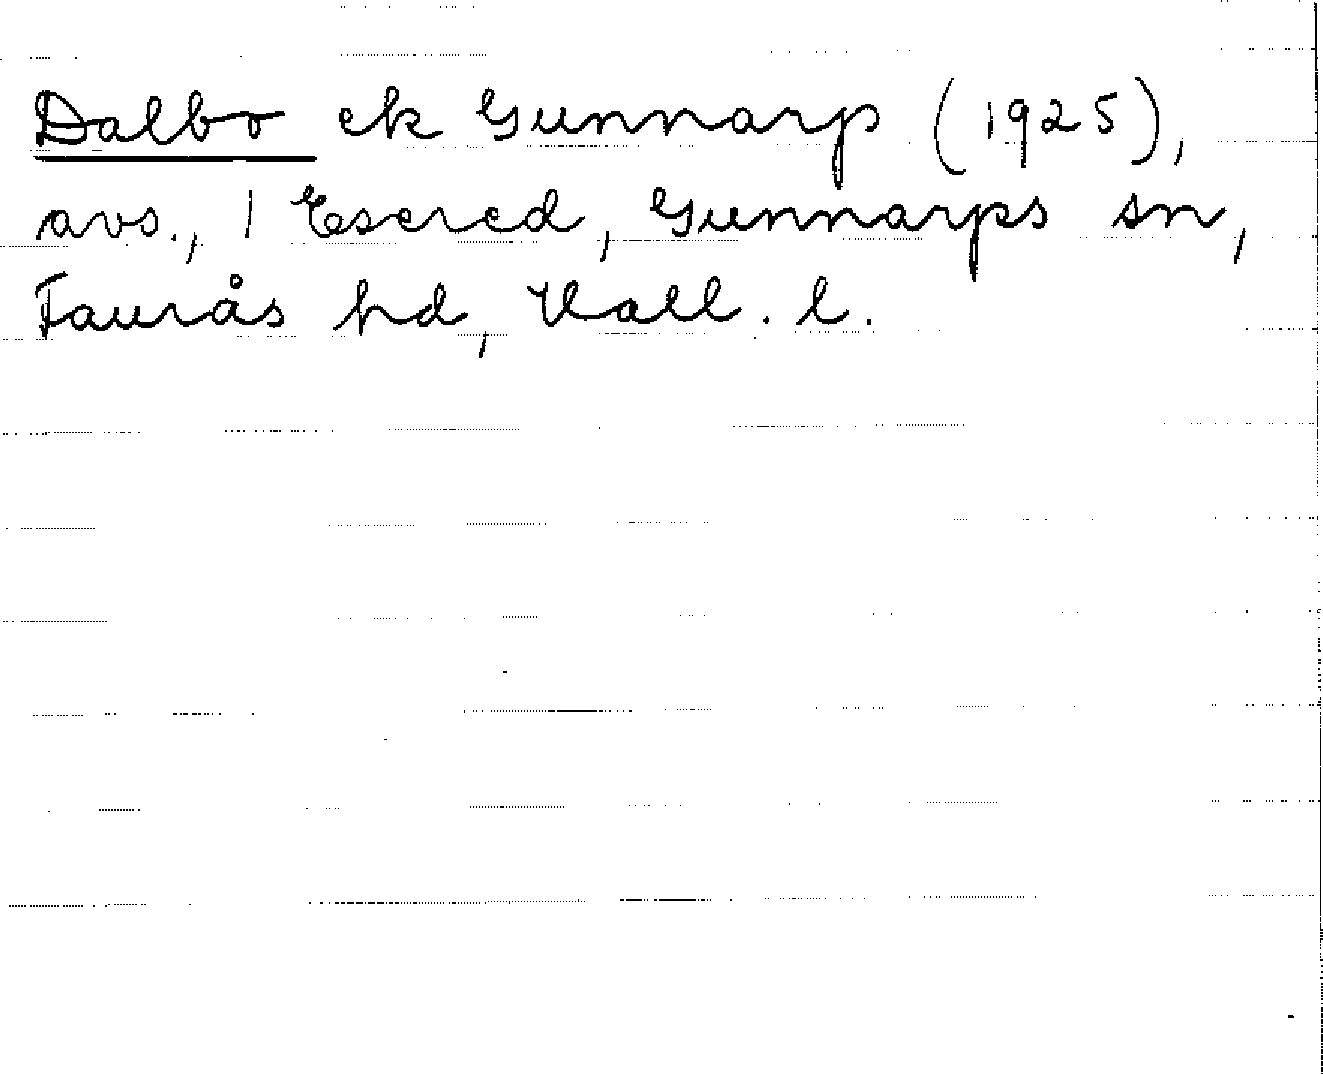 Dalbo ek Gunnarp (1925),
avs., 1 Esered, Gunnarps sn,
Faurås hd, Hall. l.